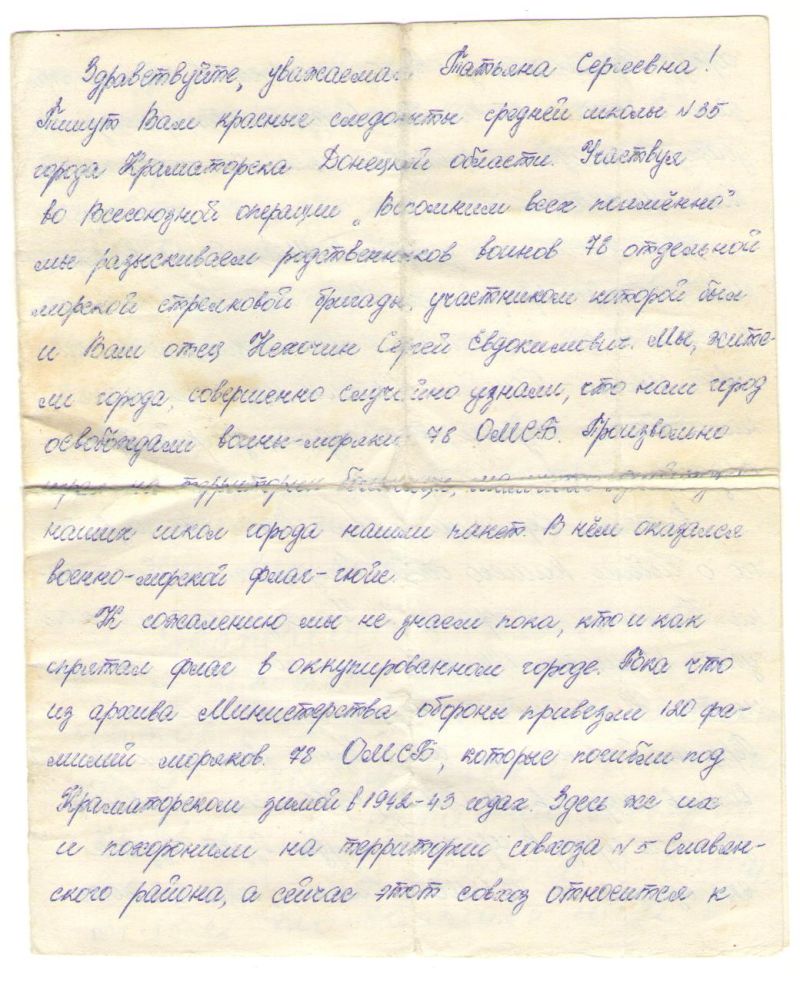 Здравствуйте, уважаемая Татьяна Сергеевна!
Пишут Вам красные следопыты средней школы N 35
города Краматорска Донецкой области. Участвуя
во Всесоюзной операции „Вспомним всех поимённо"
мы разыскиваем родственников воинов 78 отдельной
морской стрелковой бригады, участником которой был
и Ваш отец Сергей Евдокимович. Мы, жите-
ли города, совершенно случайно узнали, что наш город
освобождали воины-моряки 78 ОМСБ. Произвольно
на территории больницы,
наших школ города нашли пакет. В нём оказался
военно-морской флаг-гюйс.
К сожалению мы не знаем пока, кто и как
спрятал флаг в оккупированном городе. Пока что
из архива Министерства обороны привезли 120 фа-
милий моряков 78 ОМСБ, которые погибли под
Краматорском зимой в 1942-43 годах. Здесь же их
и похоронили на территории совхоза N 5 Славян-
ского района, а сейчас этот совхоз относится к